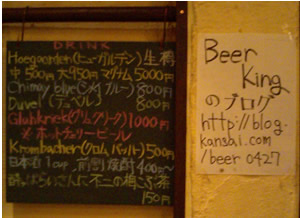 DRINK
Hoegaarden(ヒューガルデン)生樽
中500円 大950円 マグナム5000円
Chimay blue(シメイブルー) 800円
Duvel (デュベル) 800円
Gluhkriek(グリュークリーク)1000円
※ホットチェリービール
Krombacher(クロムバッハ)500円
日本酒1cup 前割り焼酎400円〜
150円
Beer
King
のブログ
http://blog.
kansai.com
/beer0427